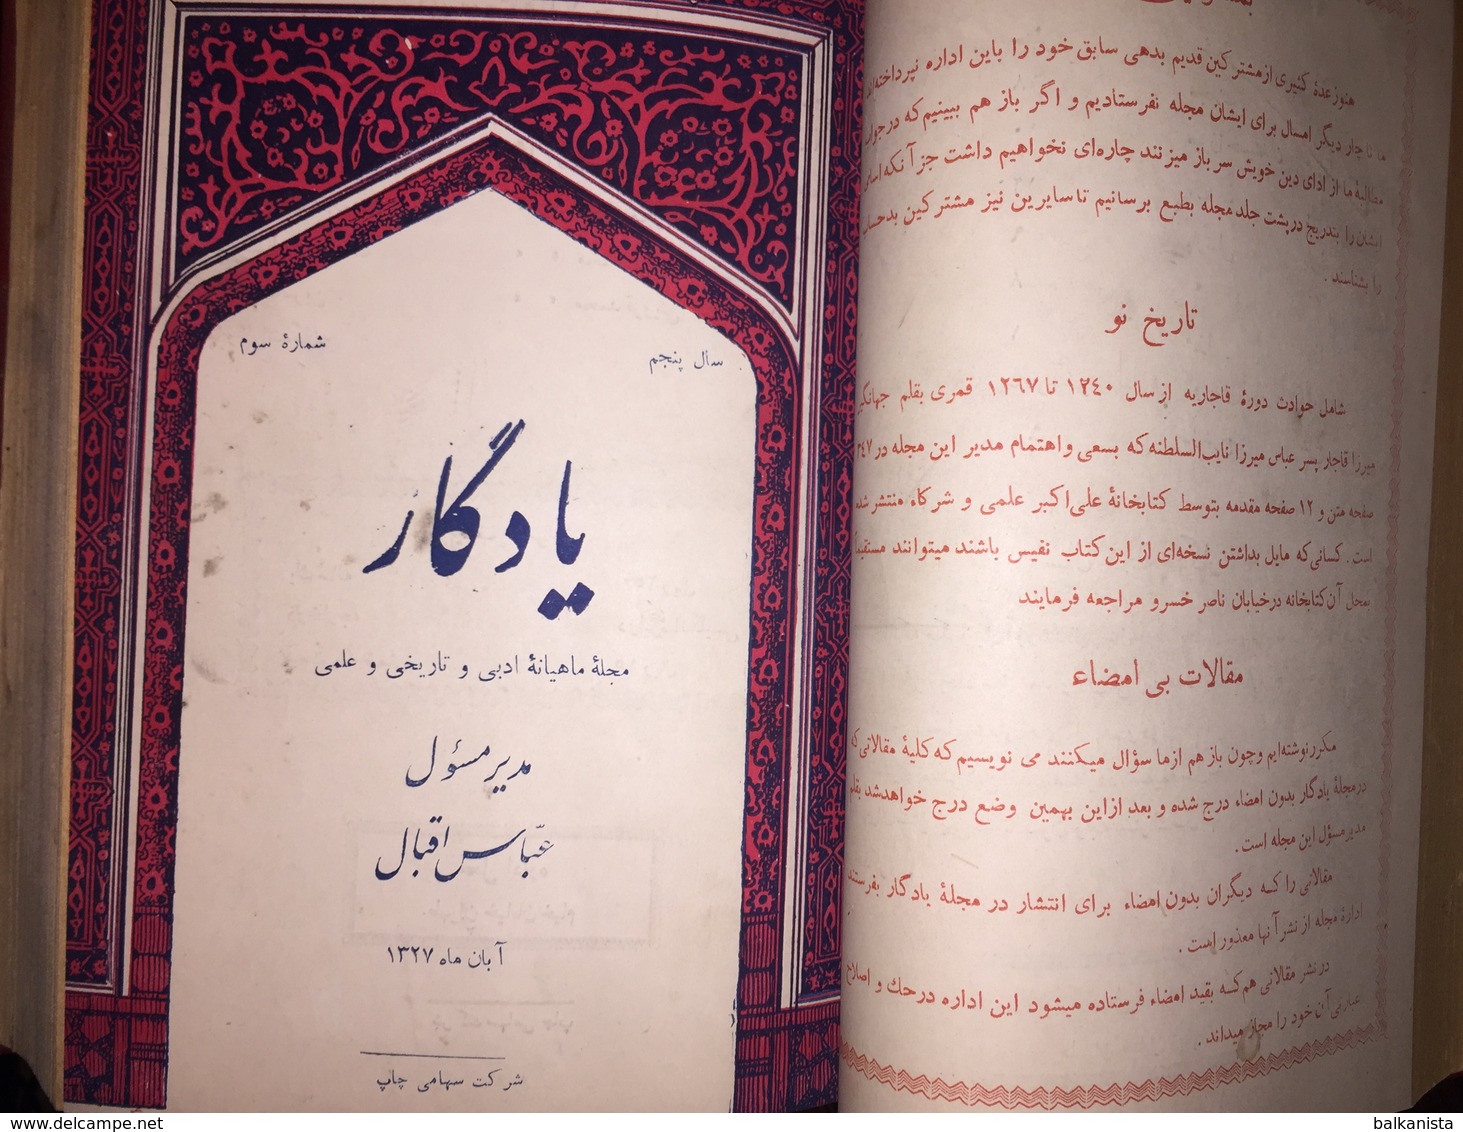 سال پنجم
شمارهٔ سوم
یادگار
مجلهٔ ماهیانهٔ ادبی و تاریخی و علمی
مدیر مسؤل
عبّاس اقبال
آبان ماه ۱۳۲۷
شرکت سهامی چاپ
هنوز عدهٔ کثیری از مشترکین قدیم بدهی سابق خود را باین اداره نپرداخته‌اند
ما ناچار دیگر امسال برای ایشان مجله نفرستادیم و اگر باز هم ببینیم که در جواب
مطالبهٔ ما از ادای دین خویش سر باز میزنند چاره‌ای نخواهیم داشت جز آنکه اسامی
ایشان را بتدریج در پشت جلد مجله بطبع برسانیم تا سایرین نیز مشترکین بدحساب
را بشناسند .
تاریخ نو
شامل حوادث دورهٔ قاجاریه از سال ۱۲۴۰ تا ۱۲۶۷ قمری بقلم جهانگیر
میرزا قاجار پسر عباس میرزا نایب‌السلطنه که بسعی و اهتمام مدیر این مجله در ۳۴۷
صفحه متن و ۱۲ صفحه مقدمه بتوسط کتابخانهٔ علی‌اکبر علمی و شرکاء منتشر شده
است . کسانی که مایل بداشتن نسخه‌ای از این کتاب نفیس باشند میتوانند مستقیماً
بمحل آن کتابخانه در خیابان ناصر خسرو مراجعه فرمایند
مقالات بی امضاء
مکرر نوشته‌ایم و چون باز هم از ما سؤال میکنند می نویسیم که کلیهٔ مقالاتی که
در مجلهٔ یادگار بدون امضاء درج شده و بعد از این بهمین وضع درج خواهد شد بقلم
مدیر مسؤل این مجله است .
مقالاتی را که دیگران بدون امضاء برای انتشار در مجلهٔ یادگار بفرستند
ادارهٔ مجله از نشر آنها معذور است .
در نشر مقالاتی هم که بقید امضاء فرستاده میشود این اداره در حک و اصلاح
عبارتی آن خود را مجاز میداند .
balkanista